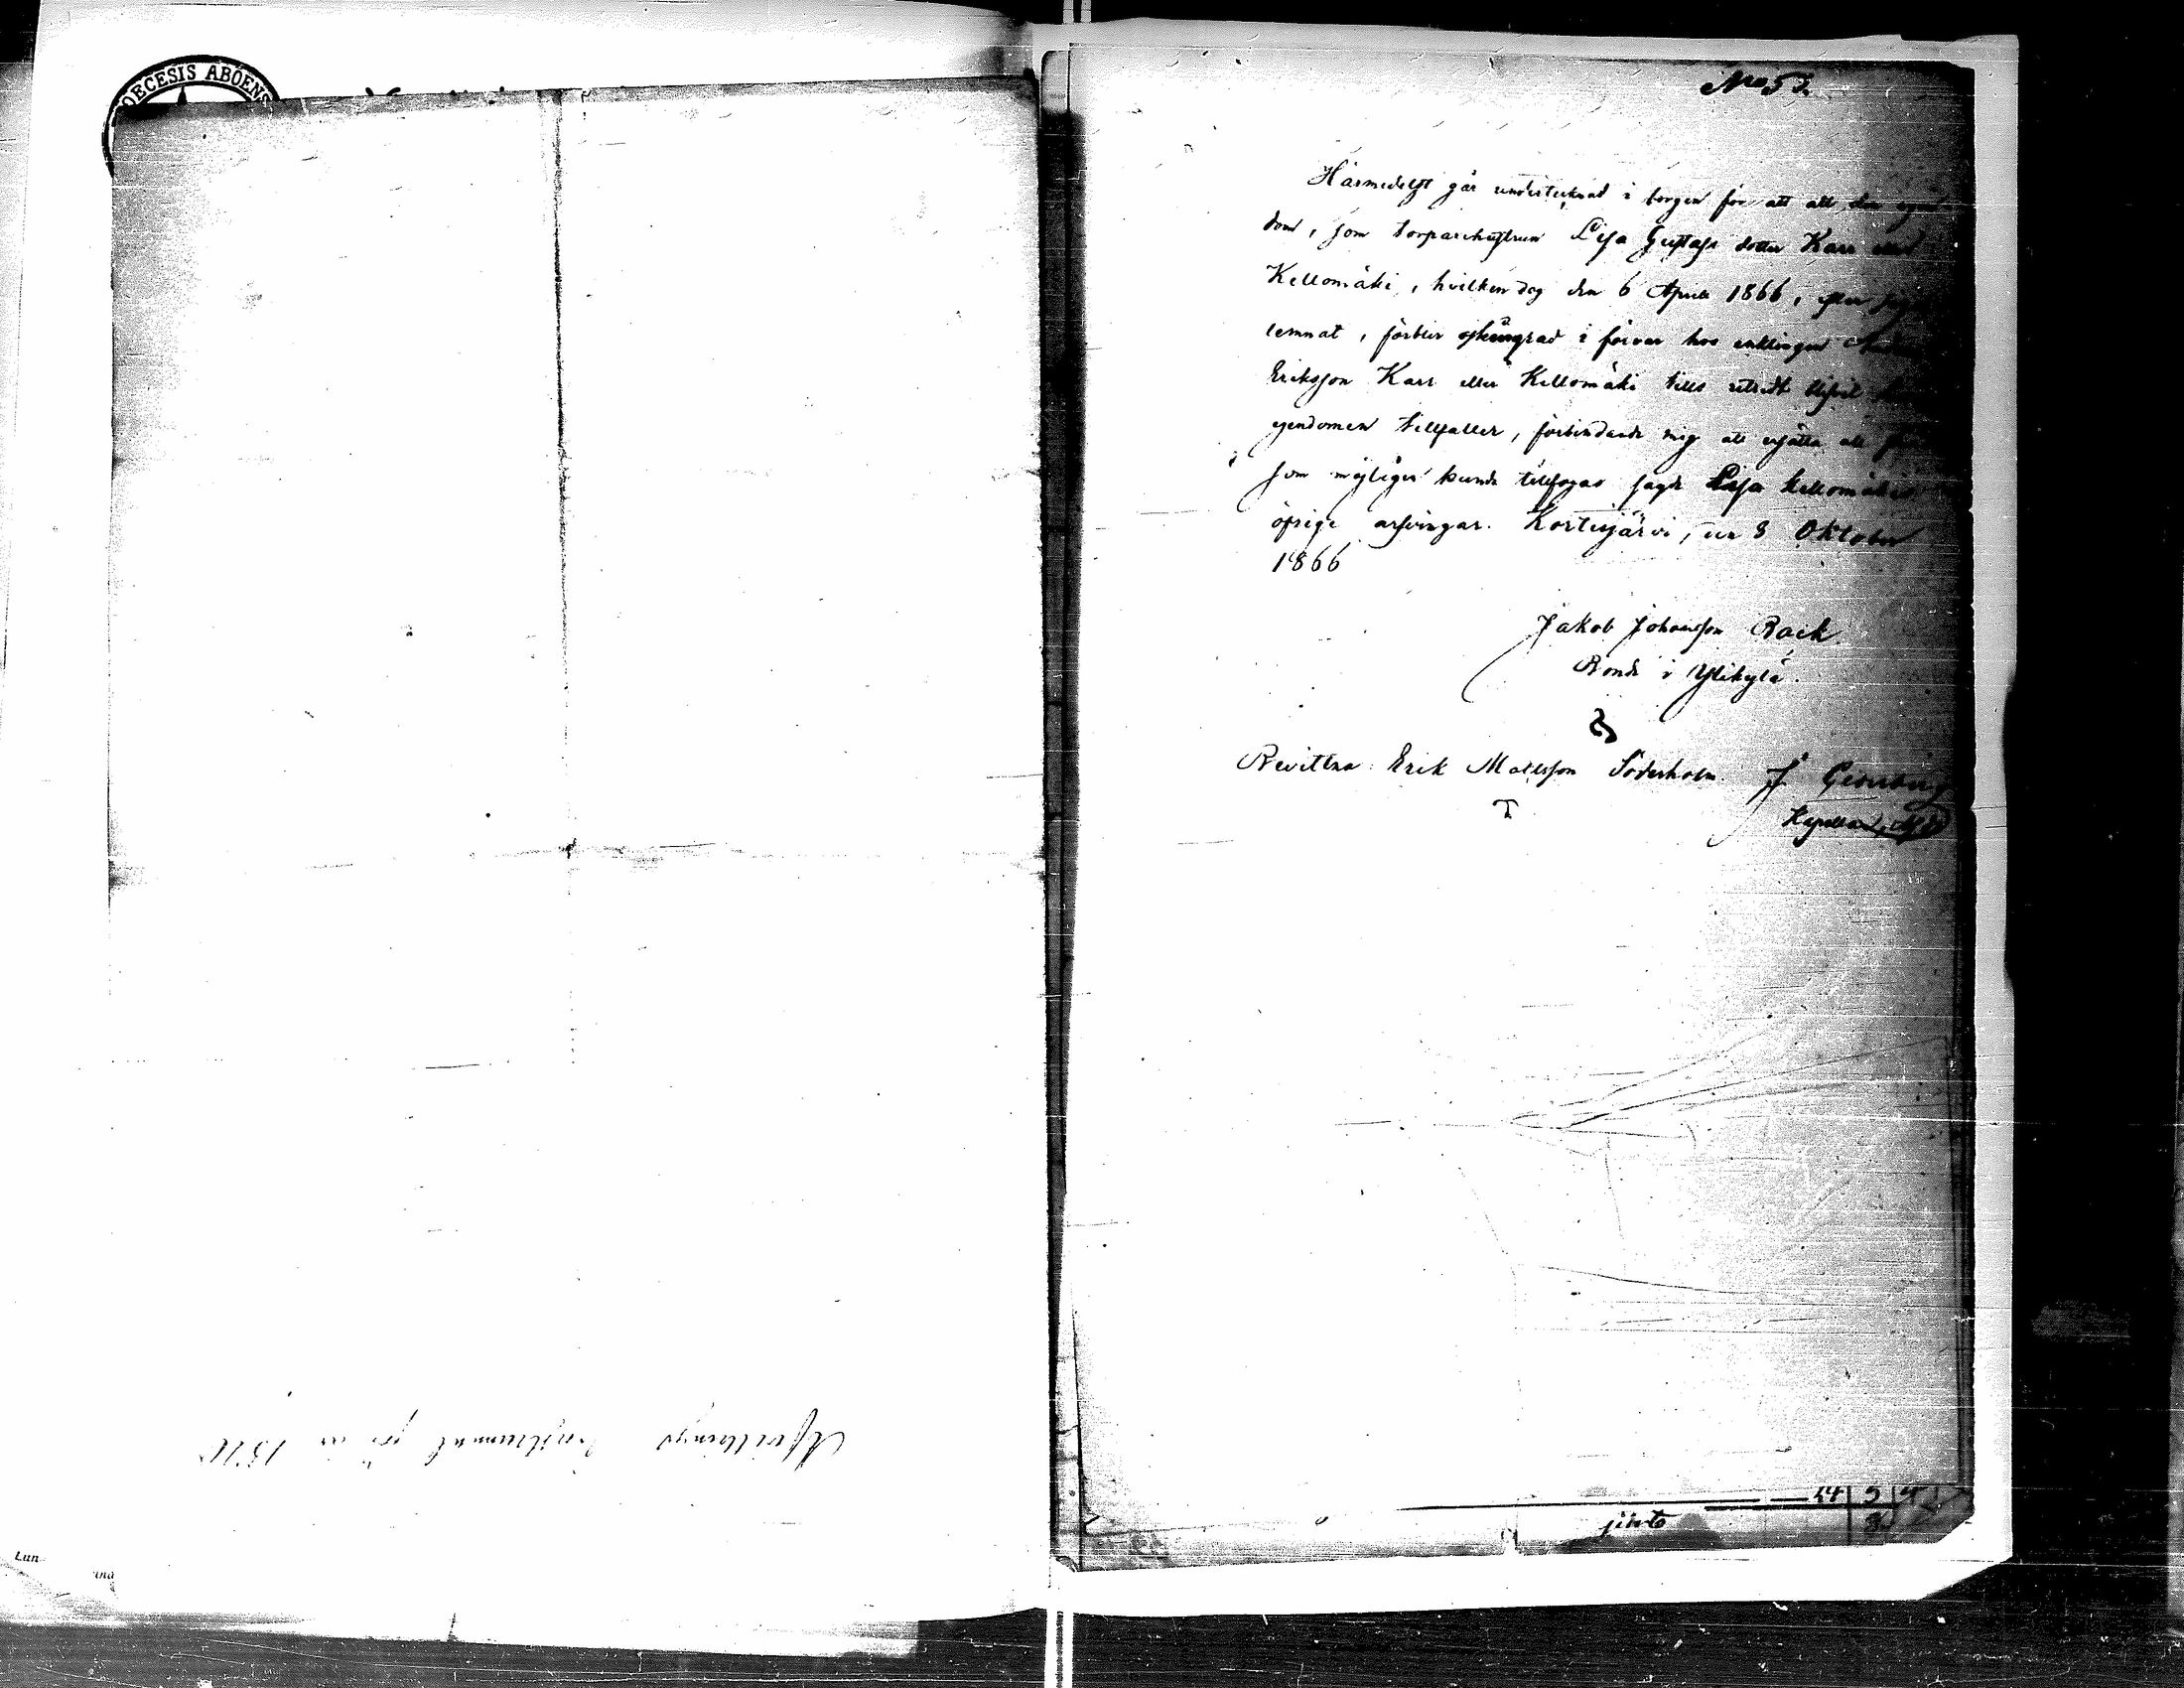 DECESIS ABOENS
No 52
Härmedelst går undertecknad i borgen för att all den egen
dom, som torparehustrun Lisa Gustafs dotter Karr eller
Kellomäki, hvilken dog den 6 April 1866, efter sig
lemnat, förblir oskingrad i förvar hos enklingen
Eriksson Karr eller Kellomäki tills utredt blifvit
egendomen tillfaller, förbindande mig att ersätta all
som möjligen kunde tillfogas sagde Lisa Kellomäkis
öfrige arfvingar. Kortesjärvi, den 8 Oktober
1866
Jakob Johansson Back
Bonde i Ylikylä
Bevittna: Erik Mattsson Söderholm J
Kapellan
Afvittrings Instrument för år
Lun
24 5